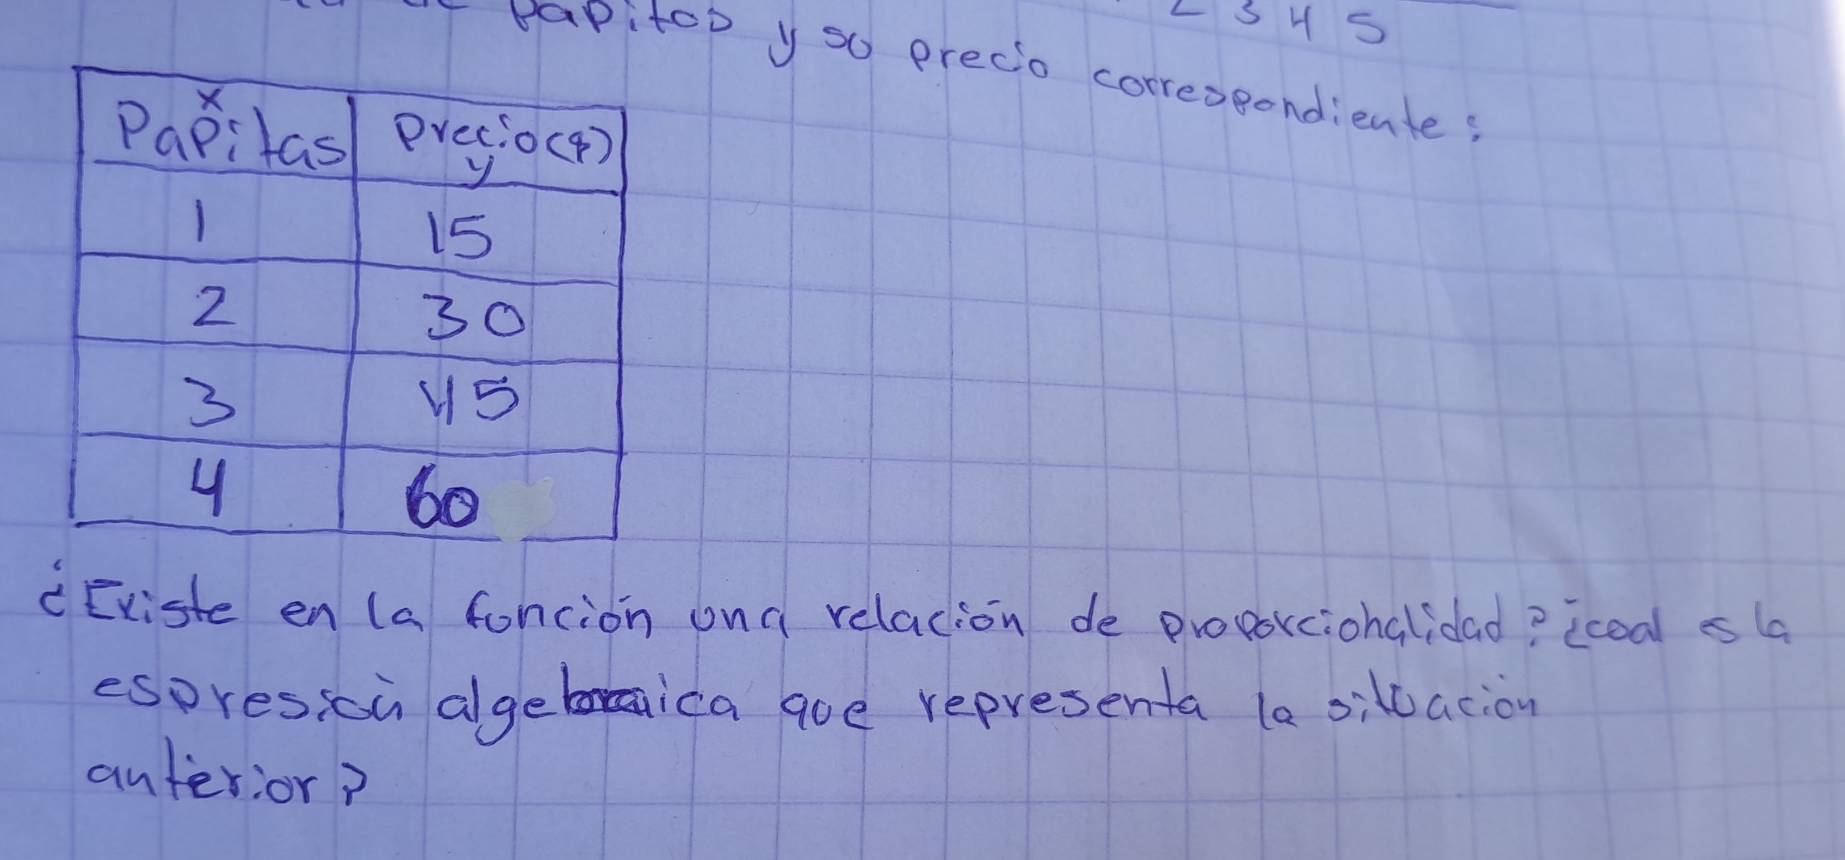 papitas y su precio correspondiente:
2 3 4 5
x
Papitas Precio($)
y
1 15
2 30
3 45
4 60
¿Existe en la función una relación de proporcionalidad? ¿cual es la
espresión algebraica que representa la situación
anterior?